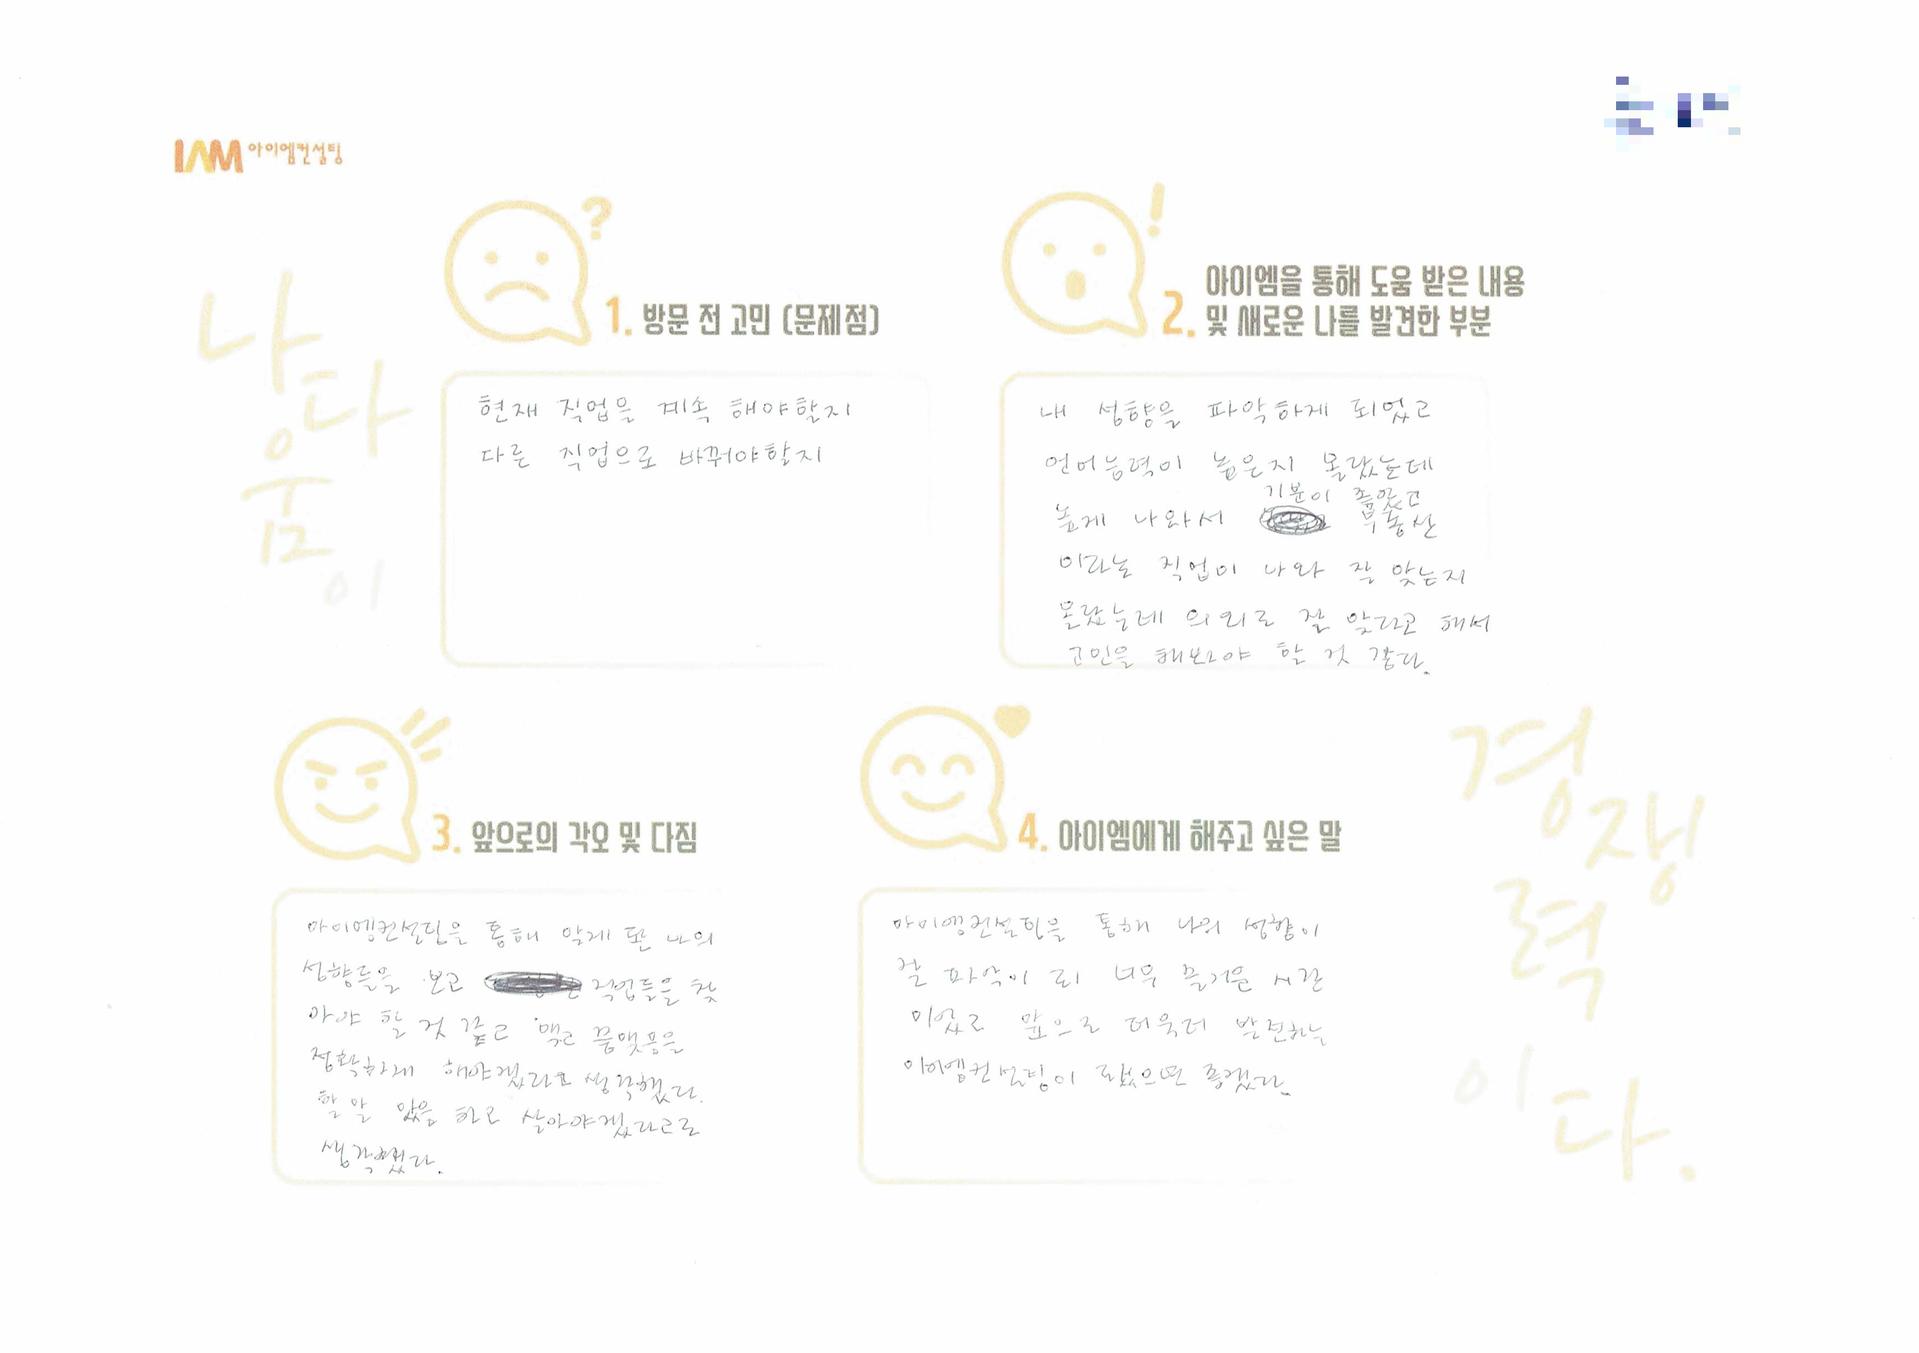 IAM 아이엠컨설팅
나다움이
1. 방문 전 고민 (문제점)
현재 직업을 계속 해야할지
다른 직업으로 바꿔야할지
2. 아이엠을 통해 도움 받은 내용
및 새로운 나를 발견한 부분
내 성향을 파악하게 되었고
언어능력이 높은지 몰랐는데
기분이 좋았고
높게 나와서 부동산
이라는 직업이 나와 잘 맞는지
몰랐는데 의외로 잘 맞다고 해서
고민을 해보아야 할 것 같다.
3. 앞으로의 각오 및 다짐
아이엠컨설팅을 통해 알게 된 나의
성향들을 보고 직업들을 찾
아야 할 것 같고 맺고 끊맺음을
정확하게 해야겠다고 생각했다.
할 말 있음 하고 살아야겠다고로
생각했다.
4. 아이엠에게 해주고 싶은 말
아이엠컨설팅을 통해 나의 성향이
잘 파악이 되 너무 즐거운 시간
이었고 앞으로 더욱더 발전하는
아이엠컨설팅이 됐으면 좋겠다.
경쟁력이다.